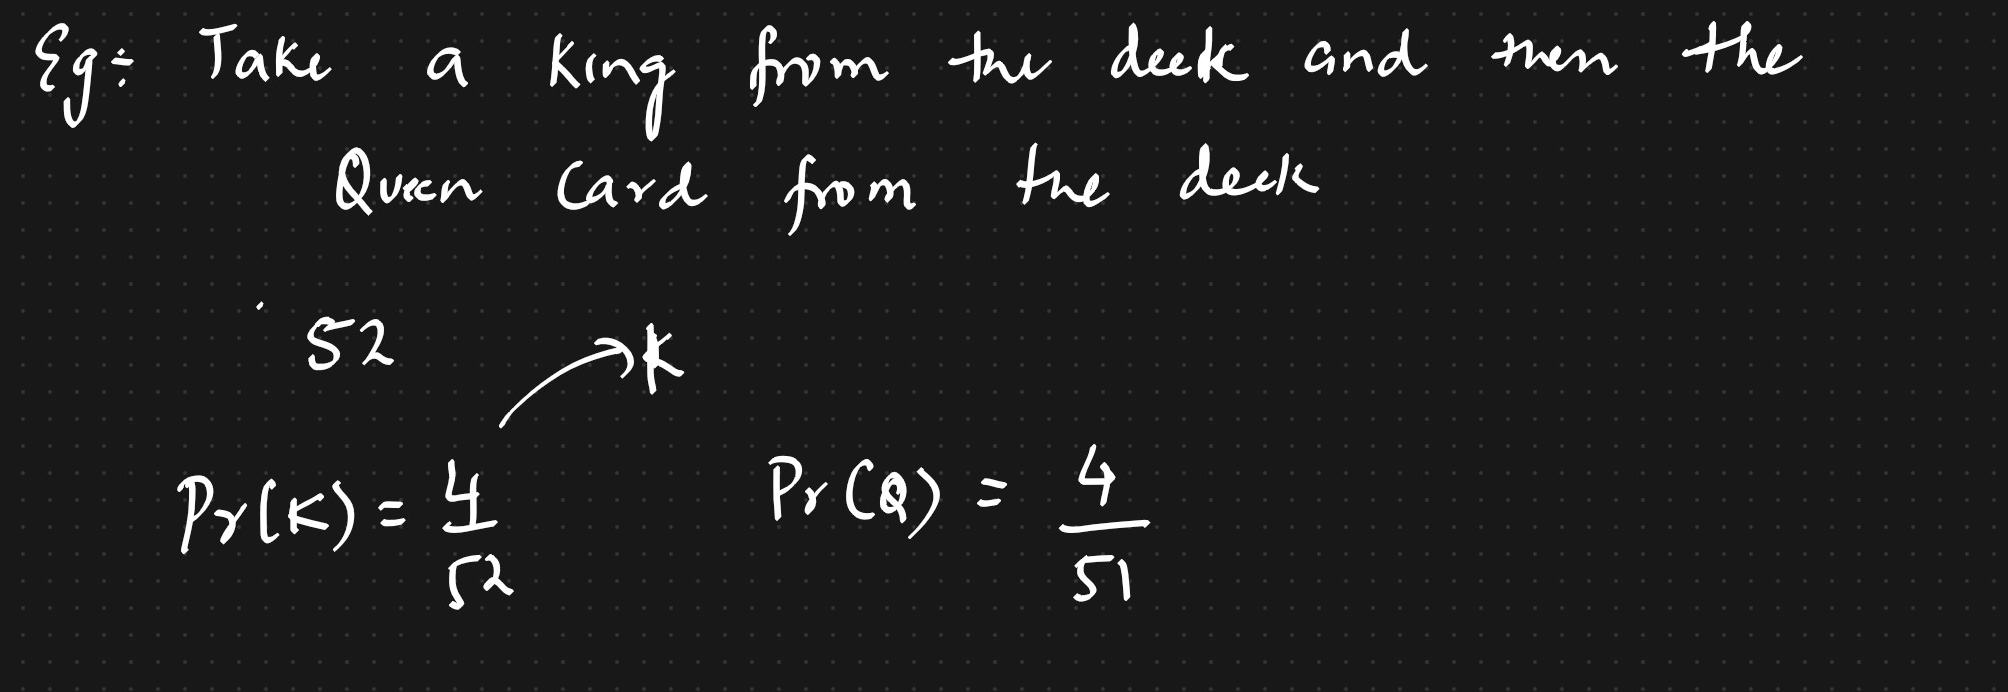 Eg: Take a King from the deck and then the
Queen Card from the deck
52
K
Pr(K) = 4/52 Pr(Q) = 4/51